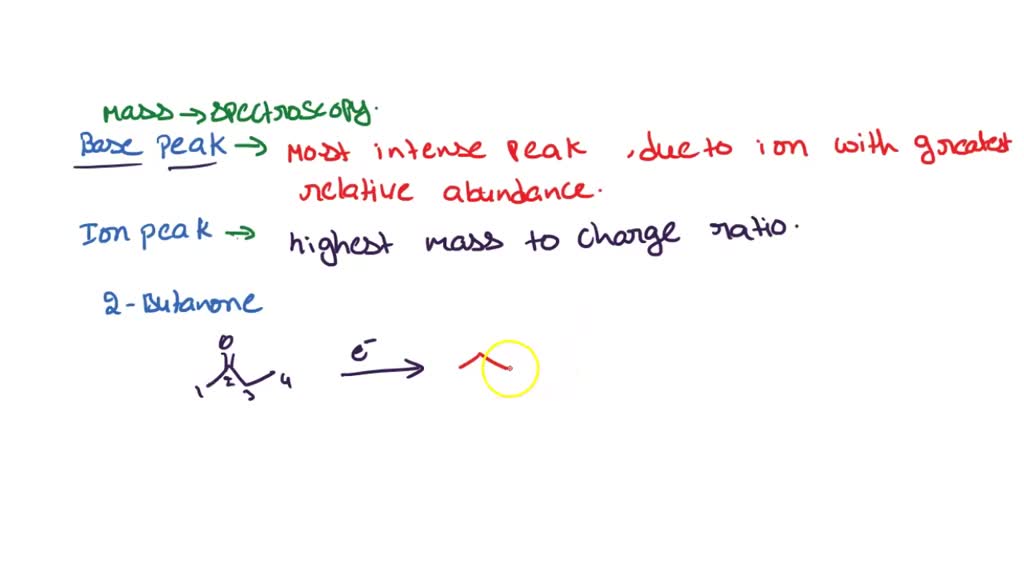 Mass → Spectroscopy.
Base Peak → Most intense peak, due to ion with greatest
relative abundance.
Ion peak → highest mass to charge ratio.
2-Butanone
O e⁻
1 2 3 4